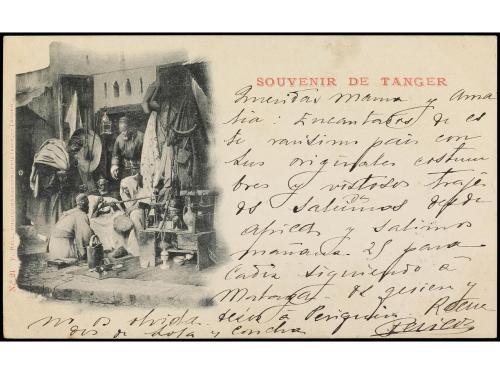 SOUVENIR DE TANGER
Queridas Mama y Ama
lia: Encantados de es
te rarisimo pais con
sus originales costum
bres y vistosos traje
os saludamos desde
Africa y salimos
mañana 25 para
Cadiz siguiendo á
Malaga. os quieren
no os olvida á Periquin
dos de Lola y Concha
Perico
No. 21